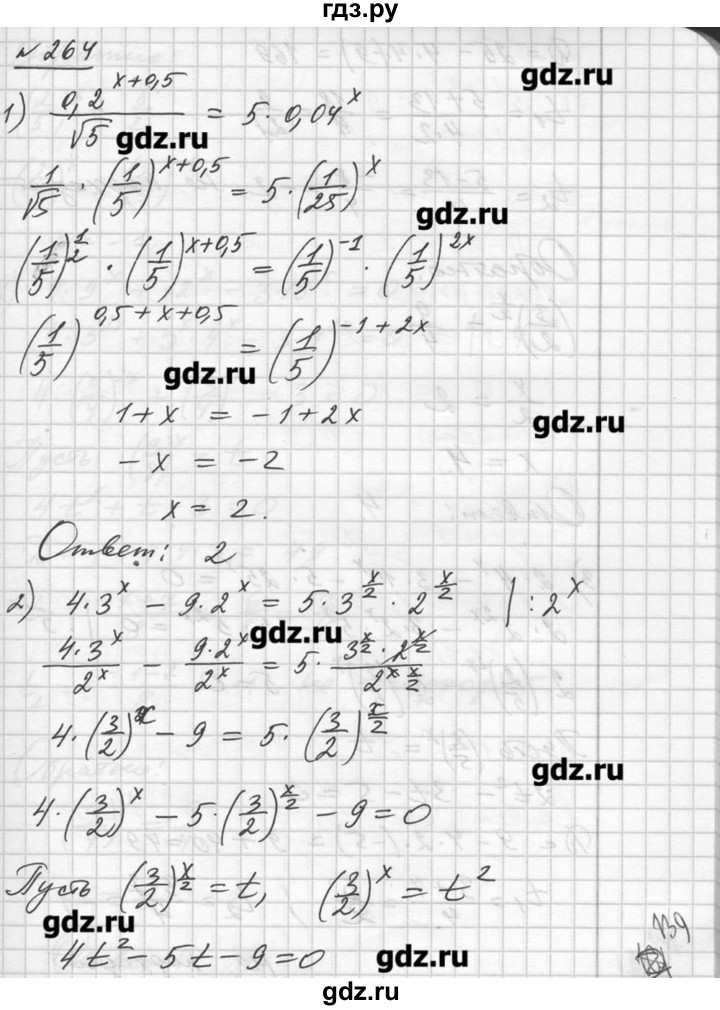 гдз.ру
№ 264
gdz.ru
1) 0,2^(x+0,5) / √5 = 5 · 0,04^x
gdz.ru
1/√5 · (1/5)^(x+0,5) = 5 · (1/25)^x
gdz.ru
(1/5)^(1/2) · (1/5)^(x+0,5) = (1/5)^(-1) · (1/5)^(2x)
(1/5)^(0,5+x+0,5) = (1/5)^(-1+2x)
gdz.ru
1+x = -1+2x
gdz.ru
-x = -2
x = 2.
Ответ: 2
2) 4·3^x - 9·2^x = 5·3^(x/2) · 2^(x/2) | : 2^x
gdz.ru
4·3^x / 2^x - 9·2^x / 2^x = 5 · 3^(x/2) · 2^(x/2) / 2^(x x/2)
4·(3/2)^x - 9 = 5·(3/2)^(x/2)
gdz.ru
4·(3/2)^x - 5·(3/2)^(x/2) - 9 = 0
Пусть (3/2)^(x/2) = t, (3/2)^x = t²
gdz.ru
139
4t² - 5t - 9 = 0
gdz.ru
gdz.ru